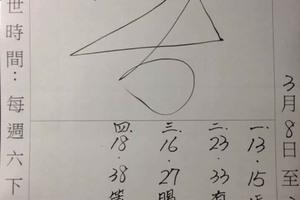 3月8日至
一.13.15
二.23.33.有
三.16.27.賜
四.18.38.等
世時間：每週六下